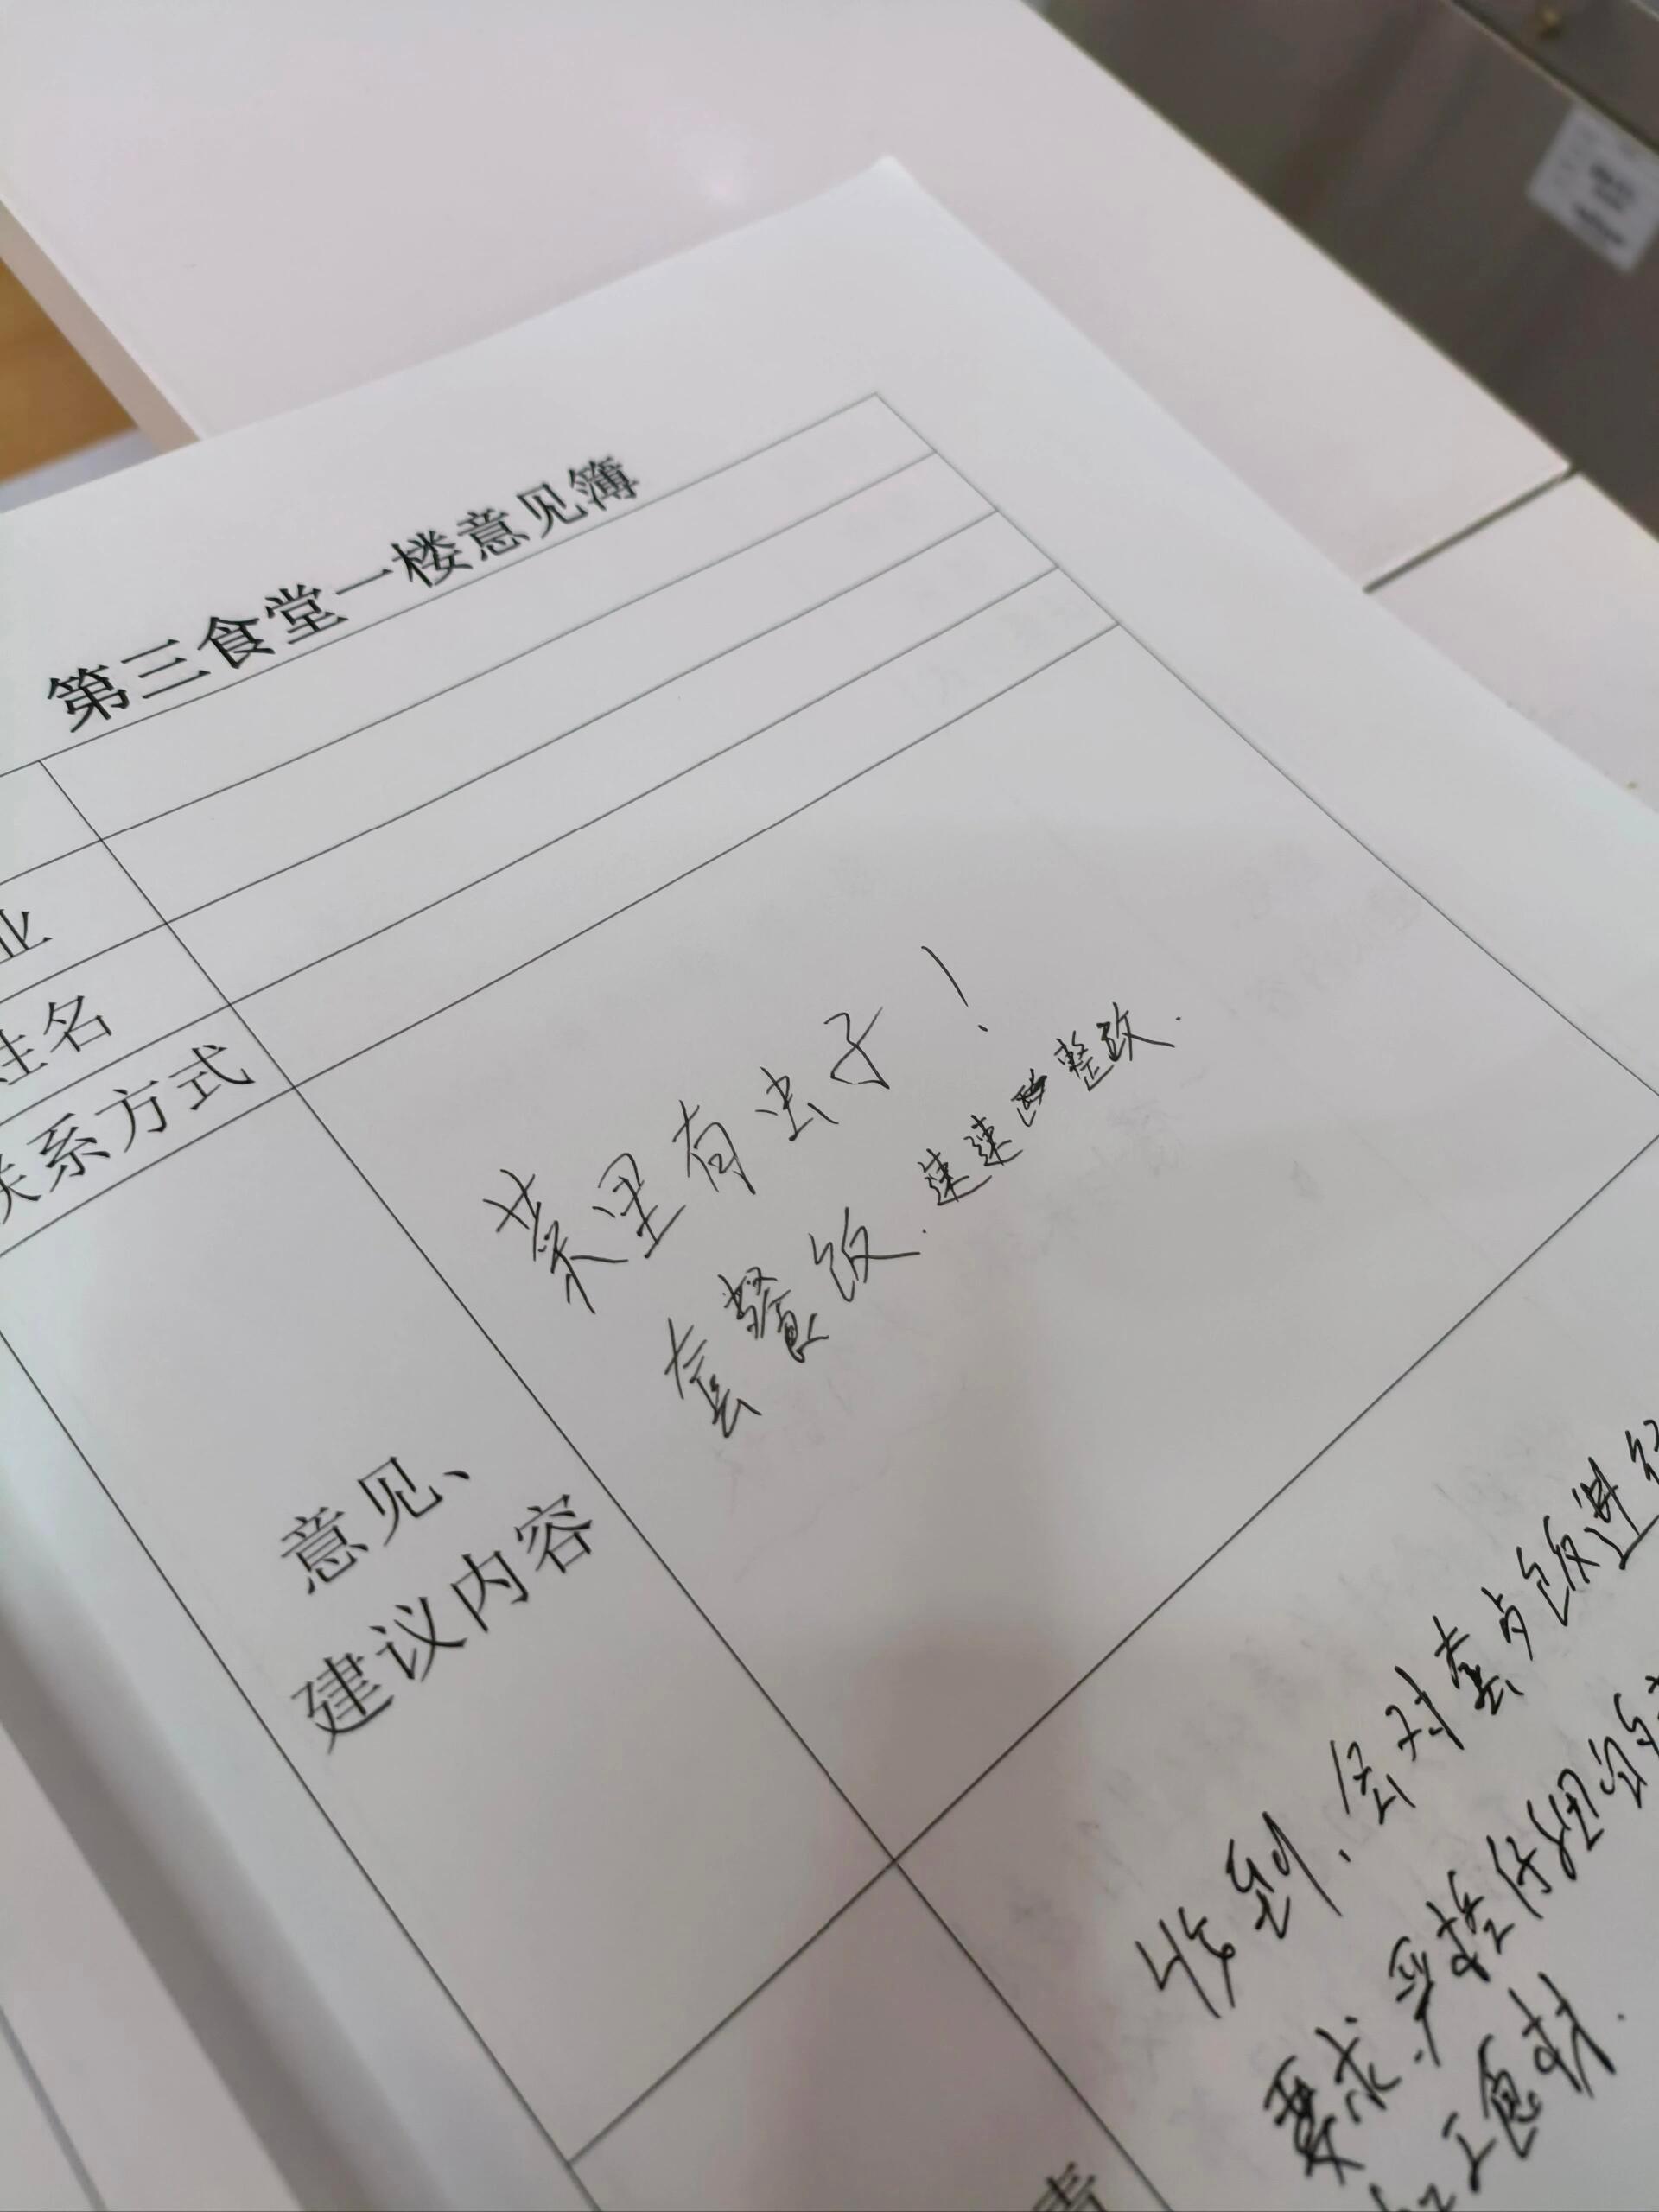 第三食堂一楼意见簿
业
姓名
联系方式
意见、
建议内容
菜里有虫子！
套餐饭.速速整改.
收到.会对套点饭进行
要求.严控仔细
加工食材.
责